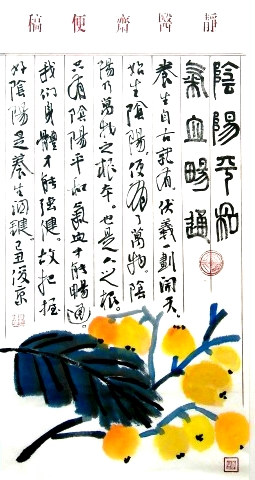 靜醫齋便稿
陰陽平和
氣血暢通
養生自古就有。伏羲一劃開天。
始生陰陽。便有了萬物。陰
陽乃萬物之根本。也是人之根。
只有陰陽平和氣血才能暢通。
我們身體才能強健。故把握
好陰陽是養生關鍵。己丑俊京